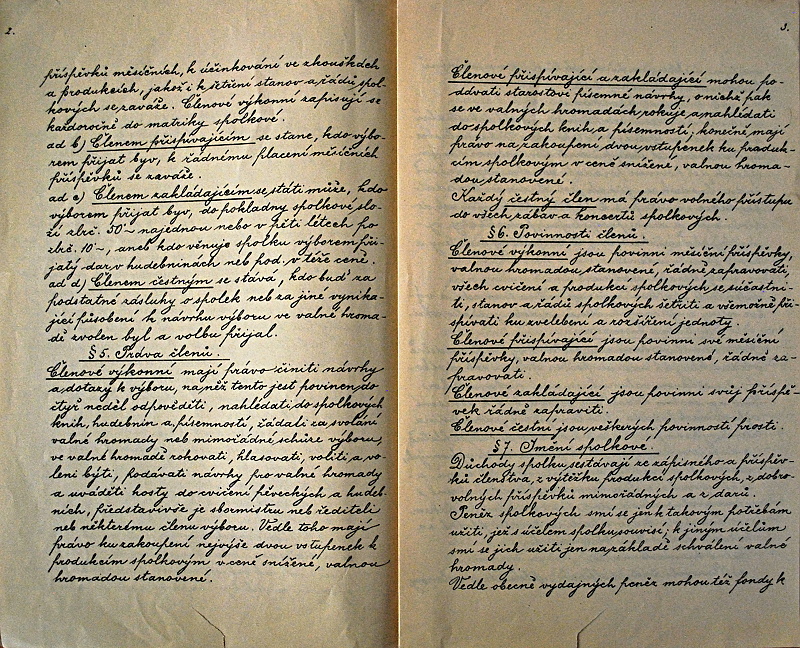 2.
příspěvků měsíčních, k účinkování ve zkouškách
a produkcích, jakož i k šetření stanov a řádů spol-
kových se zaváže. Členové výkonní zapisují se
každoročně do matriky spolkové.
ad b) Členem přispívajícím se stane, kdo výbo-
rem přijat byv, k řádnému placení měsíčních
příspěvků se zaváže.
ad c) Členem zakládajícím se státi může, kdo
výborem přijat byv, do pokladny spolkové slo-
ží zlat. 50·- najednou nebo v pěti létech po
zlat. 10·-, aneb kdo věnuje spolku výborem při-
jatý dar v hudebninách neb pod. v téže ceně.
ad d) Členem čestným se stává, kdo buď za
podstatné zásluhy o spolek neb za jiné vynika-
jící působení k návrhu výboru ve valné hroma-
dě zvolen byl a volbu přijal.
§ 5. Práva členů.
Členové výkonní mají právo činiti návrhy
a dotazy k výboru, na něž tento jest povinen do
čtyř neděl odpověděti, nahlédati do spolkových
knih, hudebnin a písemností, žádati za svolání
valné hromady neb mimořádné schůze výboru,
ve valné hromadě rokovati, hlasovati, voliti a vo-
leni býti, podávati návrhy pro valné hromady
a uváděti hosty do cvičení pěveckých a hudeb-
ních, představivše je sbormistru neb řediteli
neb některému členu výboru. Vedle toho mají
právo ku zakoupení nejvýše dvou vstupenek k
produkcím spolkovým v ceně snížené, valnou
hromadou stanovené.
3.
Členové přispívající a zakládající mohou po-
dávati starostovi písemné návrhy, o nichž pak
se ve valných hromadách rokuje, a nahlédati
do spolkových knih a písemností; konečně mají
právo na zakoupení dvou vstupenek ku produk-
cím spolkovým v ceně snížené, valnou hroma-
dou stanovené.
Každý čestný člen má právo volného přístupu
do všech zábav a koncertů spolkových.
§ 6. Povinnosti členů.
Členové výkonní jsou povinni měsíční příspěvky,
valnou hromadou stanovené, řádně zapravovati,
všech cvičení a produkcí spolkových se súčastni-
ti, stanov a řádů spolkových šetřiti a všemožně při-
spívati ku zvelebení a rozšíření jednoty.
Členové přispívající jsou povinni své měsíční
příspěvky, valnou hromadou stanovené, řádně za-
pravovati.
Členové zakládající jsou povinni svůj příspě-
vek řádně zapraviti.
Členové čestní jsou veškerých povinností prosti.
§ 7. Jmění spolkové.
Důchody spolku sestávají ze zápisného a příspěv-
ků členstva, z výtěžku produkcí spolkových, z dobro-
volných příspěvků mimořádných a z darů.
Peněz spolkových smí se jen k takovým potřebám
užíti, jež s účelem spolku souvisí; k jiným účelům
smí se jich užíti jen na základě schválení valné
hromady.
Vedle obecně vydajných peněz mohou též fondy k